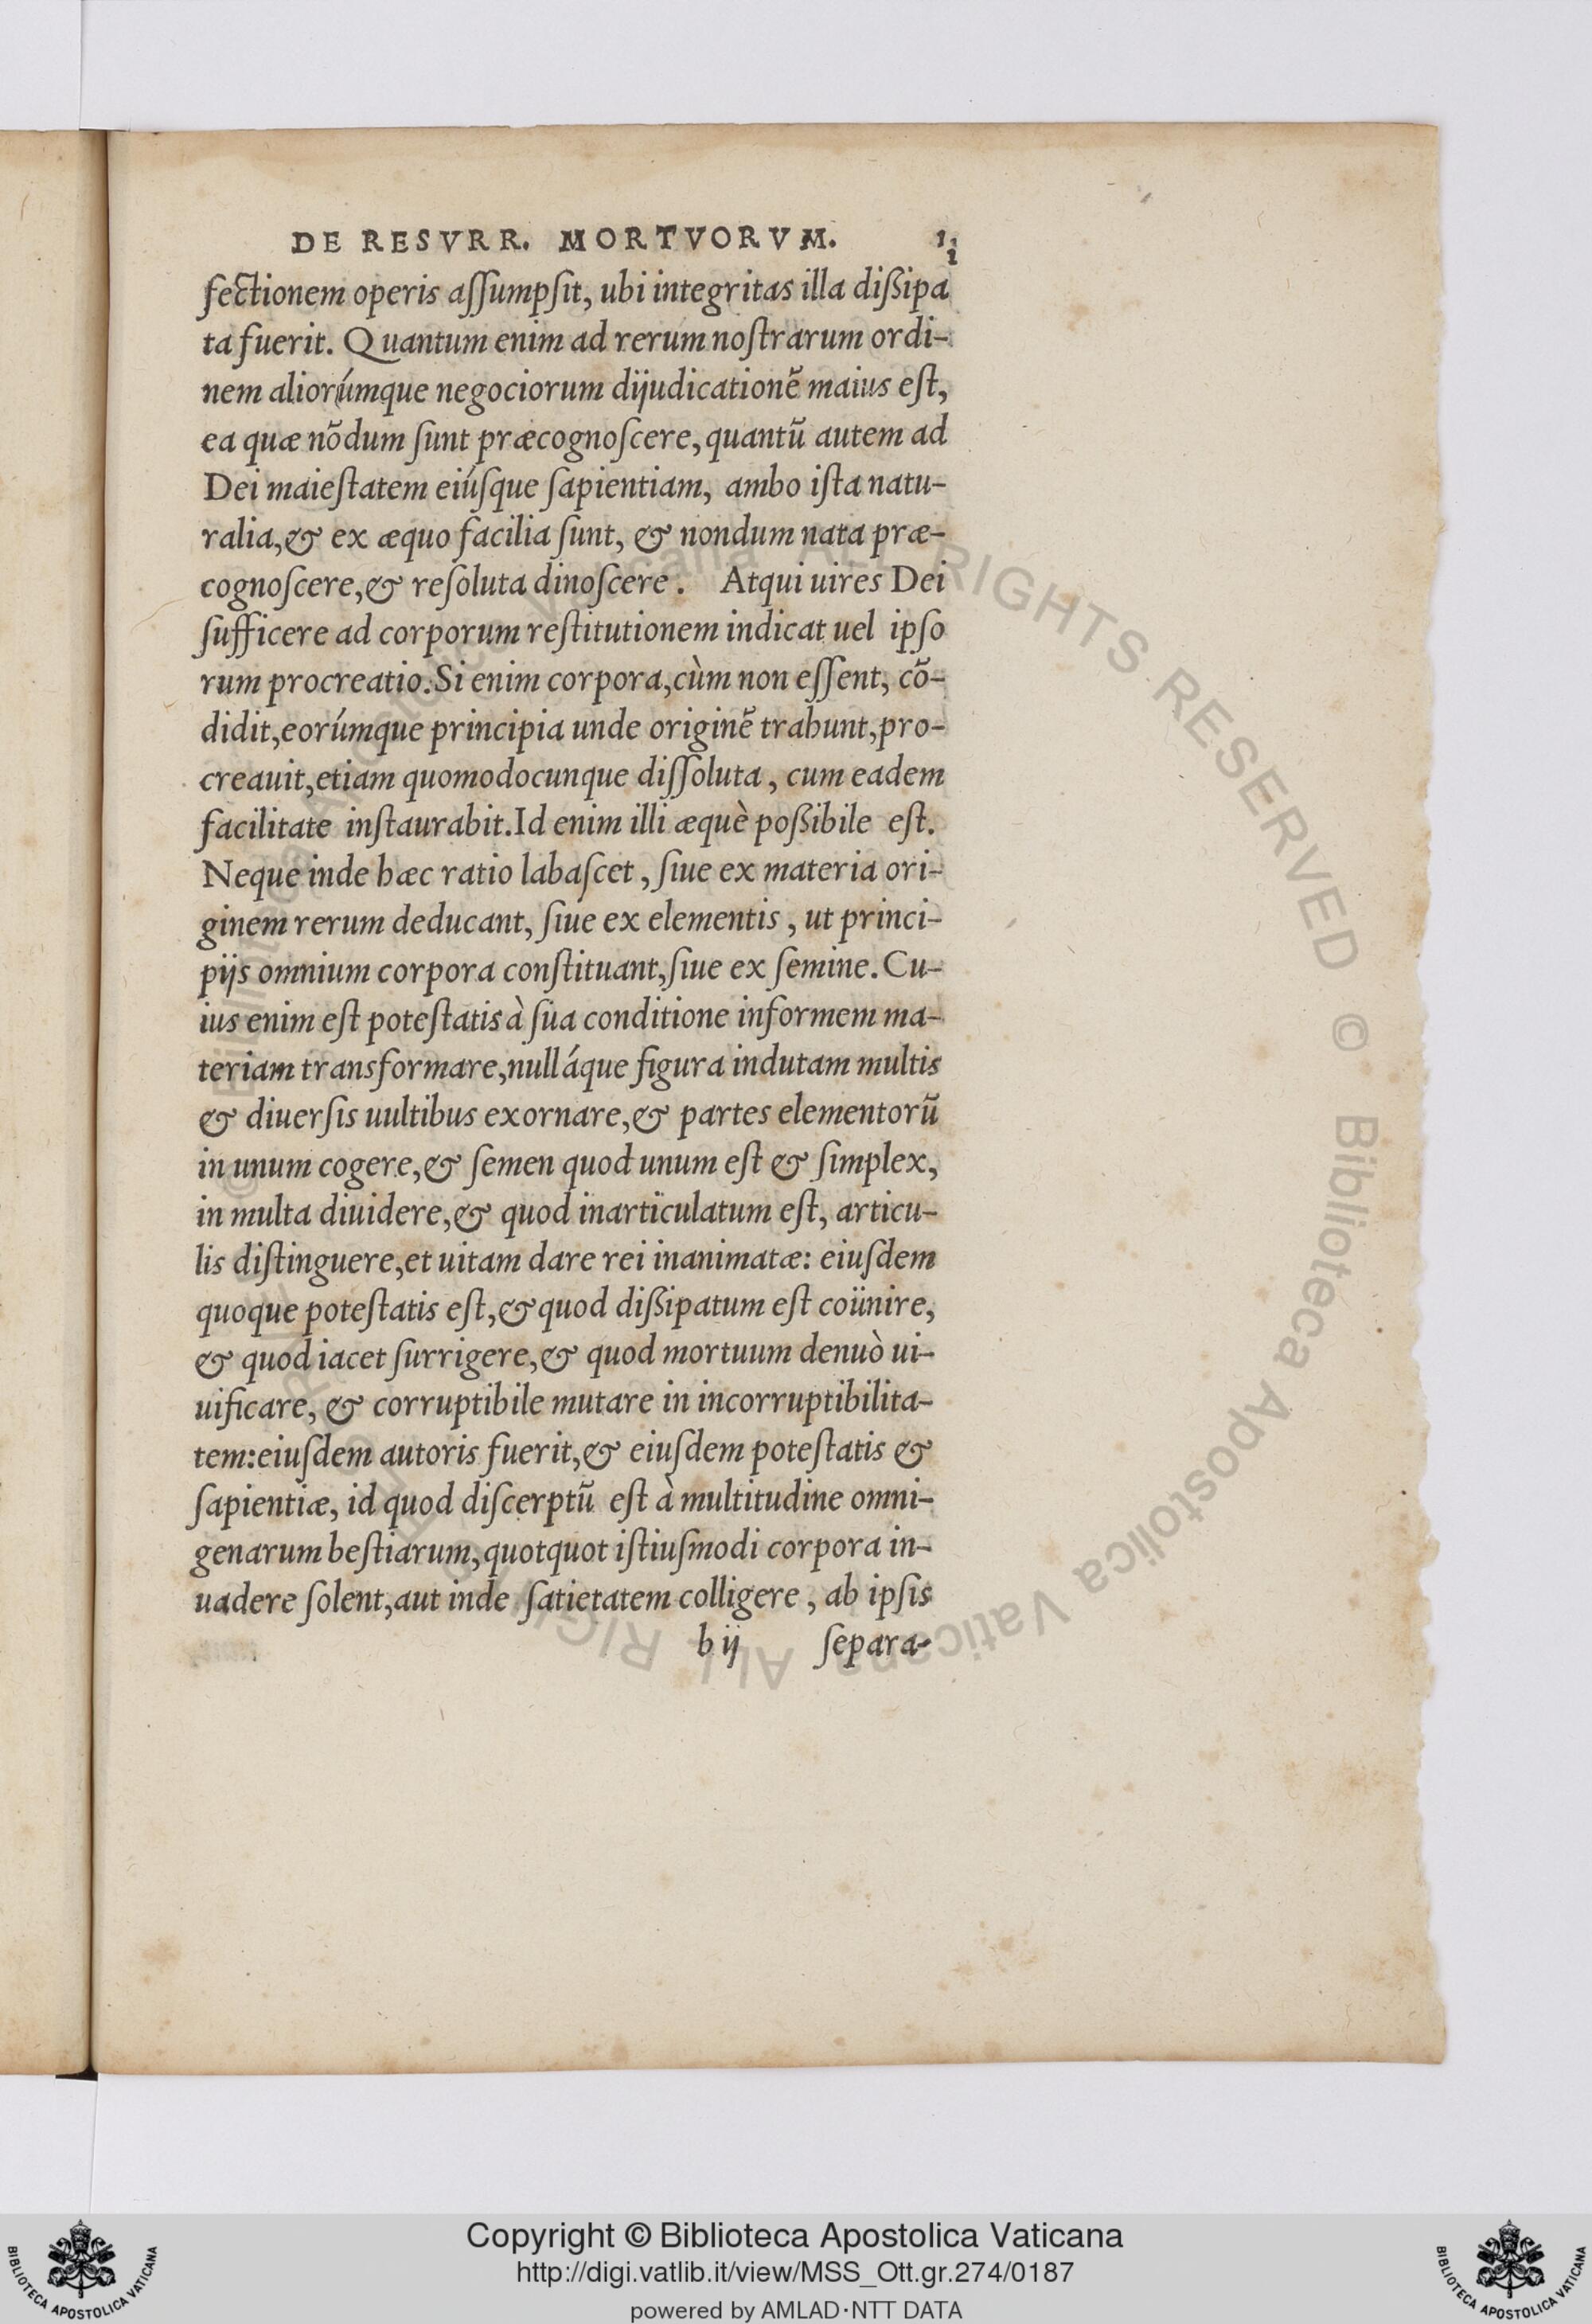 DE RESVRR. MORTVORVM.
fectionem operis aſſumpſit, ubi integritas illa dißipa
ta fuerit. Quantum enim ad rerum noſtrarum ordi-
nem aliorúmque negociorum dijudicationẽ maius eſt,
ea quæ nõdum ſunt præcognoſcere, quantũ autem ad
Dei maieſtatem eiúſque ſapientiam, ambo iſta natu-
ralia, & ex æquo facilia ſunt, & nondum nata præ-
cognoſcere, & reſoluta dinoſcere. Atqui uires Dei
ſufficere ad corporum reſtitutionem indicat uel ipſo
rum procreatio. Si enim corpora, cùm non eſſent, cõ-
didit, eorúmque principia unde originẽ trahunt, pro-
creauit, etiam quomodocunque diſſoluta, cum eadem
facilitate inſtaurabit. Id enim illi æquè poßibile eſt.
Neque inde hæc ratio labaſcet, ſiue ex materia ori-
ginem rerum deducant, ſiue ex elementis, ut princi-
pijs omnium corpora conſtituant, ſiue ex ſemine. Cu-
ius enim eſt poteſtatis à ſua conditione informem ma-
teriam transformare, nulláque figura indutam multis
& diuerſis uultibus exornare, & partes elementorũ
in unum cogere, & ſemen quod unum eſt & ſimplex,
in multa diuidere, & quod inarticulatum eſt, articu-
lis diſtinguere, et uitam dare rei inanimatæ: eiuſdem
quoque poteſtatis eſt, & quod dißipatum eſt coünire,
& quod iacet ſurrigere, & quod mortuum denuò ui-
uificare, & corruptibile mutare in incorruptibilita-
tem: eiuſdem autoris fuerit, & eiuſdem poteſtatis &
ſapientiæ, id quod diſcerptũ eſt à multitudine omni-
genarum beſtiarum, quotquot iſtiuſmodi corpora in-
uadere ſolent, aut inde ſatietatem colligere, ab ipſis
b ij ſepara-
© Biblioteca Apostolica Vaticana ALL RIGHTS RESERVED © Biblioteca Apostolica Vaticana ALL RIGHTS RESERVED
Copyright © Biblioteca Apostolica Vaticana
http://digi.vatlib.it/view/MSS_Ott.gr.274/0187
powered by AMLAD·NTT DATA
BIBLIOTECA APOSTOLICA VATICANA
BIBLIOTECA APOSTOLICA VATICANA